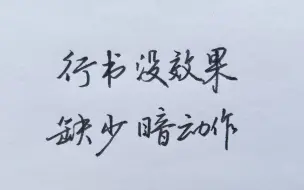 行书没效果
缺少暗动作